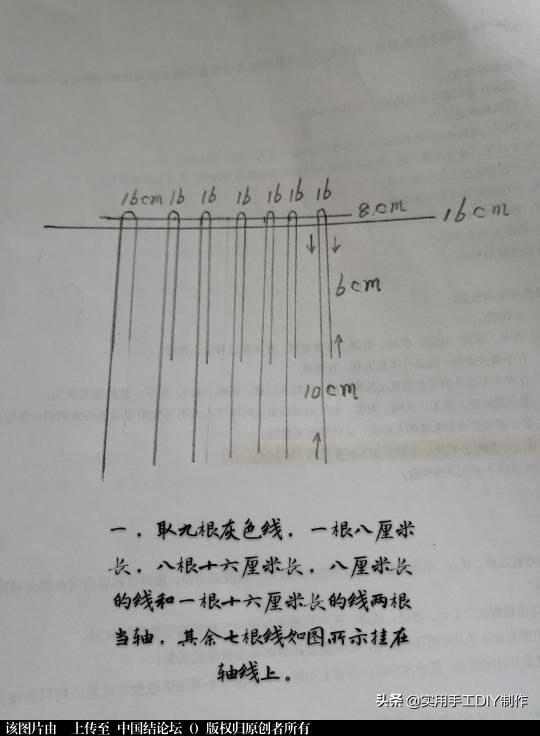 16cm 16 16 16 16 16 16
8cm
16cm
6cm
10cm
一，取九根灰色线，一根八厘米
长，八根十六厘米长，八厘米长
的线和一根十六厘米长的线两根
当轴，其余七根线如图所示挂在
轴线上。
头条 @实用手工DIY制作
该图片由 上传至 中国结论坛 () 版权归原创者所有